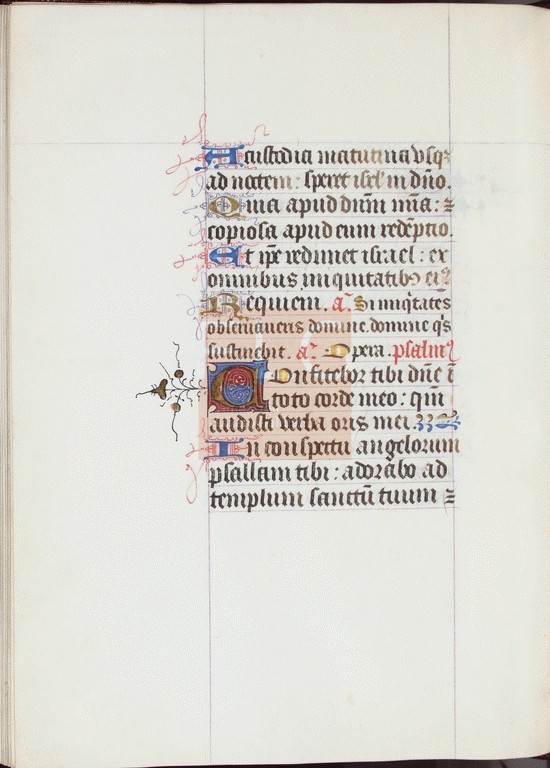 A custodia matutina vsq3
ad noctem: speret isrl' in dño.
Quia apud dnm mia: z
copiosa apud eum redẽptio.
Et ipẽ redimet israel: ex
omnibus iniquitatibꝰ eiꝰ
Requiem. a͠. Si iniq̃tates
obseruaueris domine. domine q̃s
sustinebit. a͠. Opera. psalmꝰ
Confitebor tibi dñe ĩ
toto corde meo: qm̃
audisti verba oris mei.
In conspectu angelorum
psallam tibi: adorabo ad
templum sanctũ tuum z